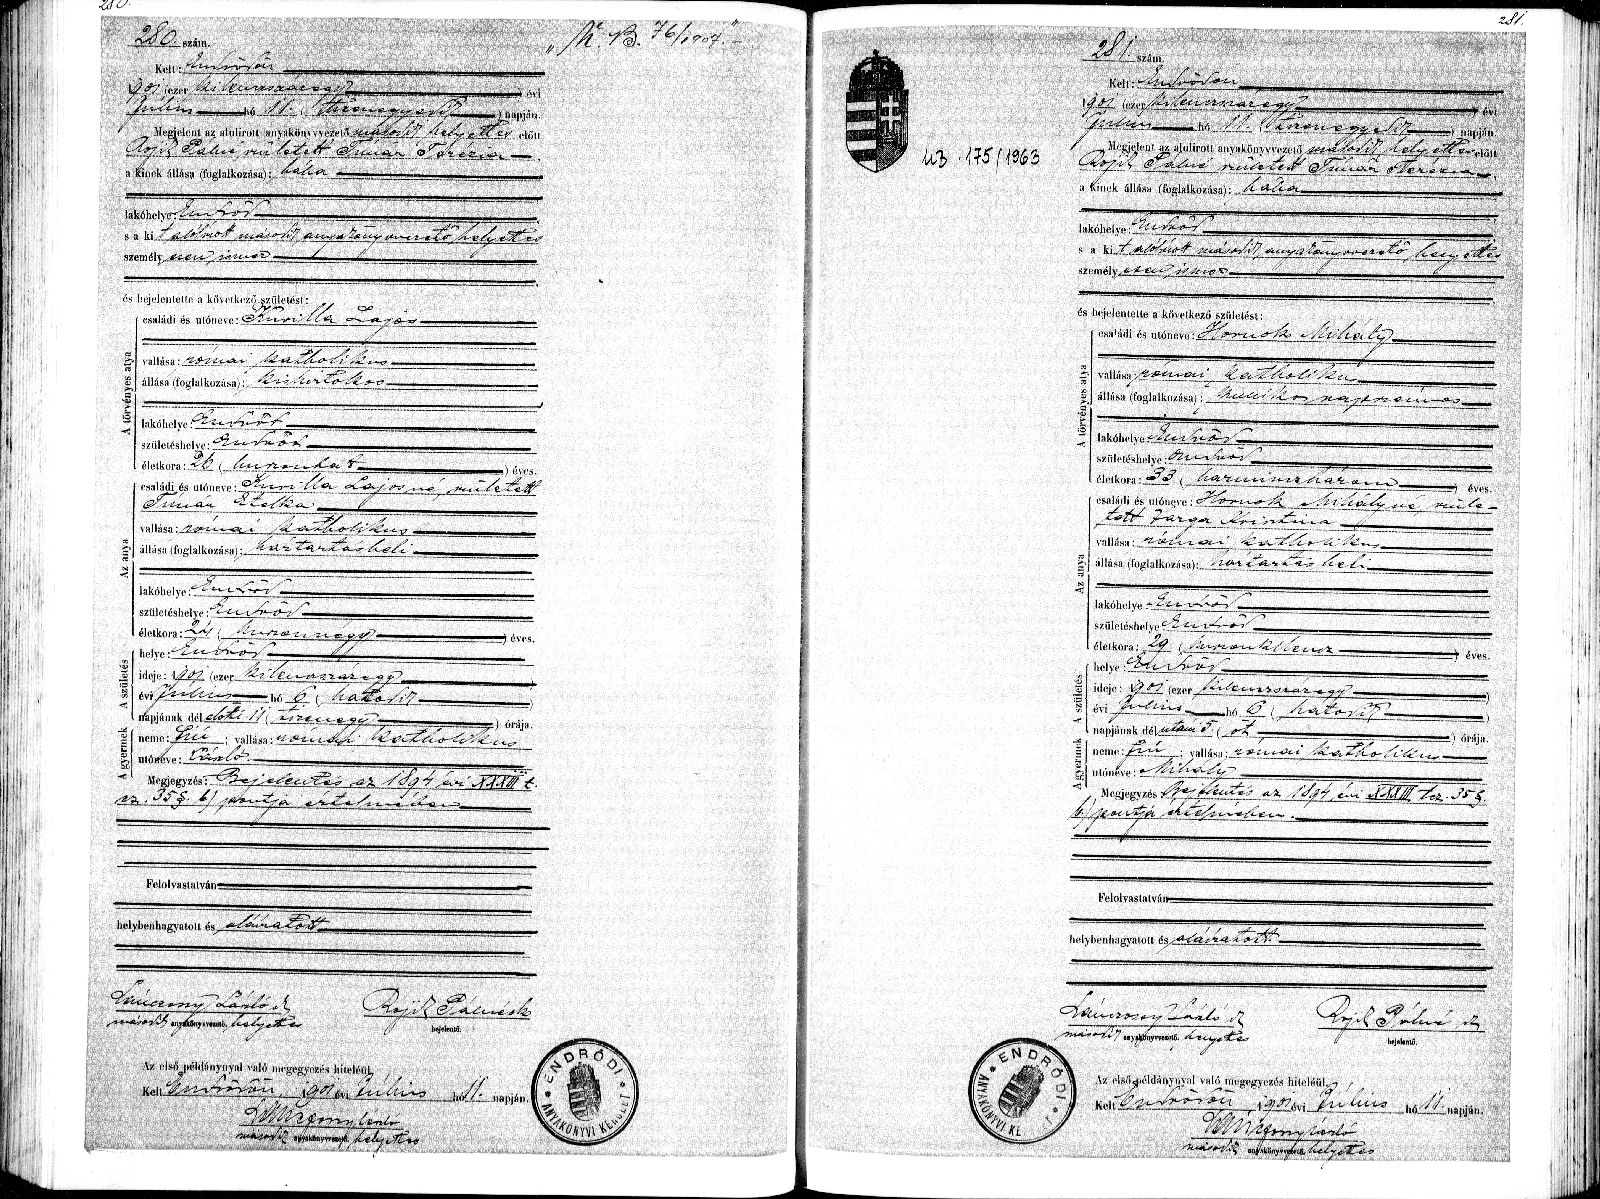 280.
280. szám.
Kelt: Endrődön
1901 (ezer kilencszázegy) évi
Július hó 11. (tizenegyedik) napján.
Megjelent az alulirott anyakönyvvezető második helyettes előtt
Rojik Pálné született Timár Terézia
a kinek állása (foglalkozása): bába
lakóhelye Endrőd
s a kit alólirott második anyakönyvvezető helyettes
személyesen ismer
és bejelentette a következő születést:
A törvényes atya
családi és utóneve: Kurilla Lajos
vallása: római katholikus
állása (foglalkozása): kisbirtokos
lakóhelye Endrőd
születéshelye: Endrőd
életkora: 26 (huszonhat) éves.
Az anya
családi és utóneve: Kurilla Lajosné, született
Timár Etelka
vallása: római katholikus
állása (foglalkozása): háztartásbeli
lakóhelye: Endrőd
születéshelye: Endrőd
életkora: 24 (huszonnégy) éves.
A születés
helye: Endrőd
ideje: 1901 (ezer kilencszázegy
évi Július hó 6 (hatodik)
napjának dél előtti 11 (tizenegy) órája.
A gyermek
neme: fiú; vallása: római katholikus
utóneve: László
Megjegyzés: Bejelentés az 1894 évi XXXIII t.
cz. 35 § b) pontja értelmében
Felolvastatván
helybenhagyatott és aláiratott
Lánczony László sk
második anyakönyvvezető helyettes
Rojik Pálné sk
bejelentő.
Az első példánynyal való megegyezés hiteléül.
Kelt Endrődön, 1901 évi Július hó 11. napján.
Lánczony László
második anyakönyvvezető helyettes
ENDRŐDI ANYAKÖNYVI KERÜLET
B. 76/1907.
281.
281 szám.
Kelt: Endrődön
1901 (ezer kilencszázegy) évi
Július hó 11. (tizenegyedik) napján.
Megjelent az alulirott anyakönyvvezető második helyettes előtt
Rojik Pálné született Timár Terézia
a kinek állása (foglalkozása): bába
lakóhelye: Endrőd
s a kit alólirott második anyakönyvvezető helyettes
személyesen ismer
és bejelentette a következő születést:
A törvényes atya
családi és utóneve: Hornok Mihály
vallása: római katholikus
állása (foglalkozása): kubikos napszámos
lakóhelye Endrőd
születéshelye Endrőd
életkora: 33 (harminczhárom) éves.
Az anya
családi és utóneve: Hornok Mihályné, szüle-
tett Varga Krisztina
vallása: római katholikus
állása (foglalkozása): háztartásbeli
lakóhelye Endrőd
születéshelye Endrőd
életkora: 29 (huszonkilencz) éves.
A születés
helye: Endrőd
ideje: 1901 (ezer kilencszázegy)
évi Július hó 6 (hatodik)
napjának dél utáni 5. (öt) órája.
A gyermek
neme: fiú; vallása: római katholikus
utóneve: Mihály
Megjegyzés Bejelentés az 1894 évi XXXIII tcz. 35 §.
b) pontja értelmében.
Felolvastatván
helybenhagyatott és aláiratott
Lánczony László sk
második anyakönyvvezető helyettes
Rojik Pálné sk
bejelentő.
Az első példánynyal való megegyezés hiteléül.
Kelt Endrődön, 1901 évi Július hó 11 napján.
Lánczony László
második anyakönyvvezető helyettes
ENDRŐDI ANYAKÖNYVI KE T
UB. 175/1963